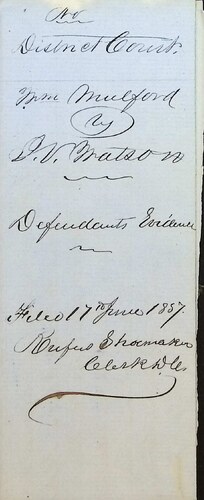 No
District Court.
Wm Mulford
vs
J. V. Watson
Defendants Evidence
Filed 17th June 1857.
Rufus Shoemaker
Clerk D. Ct